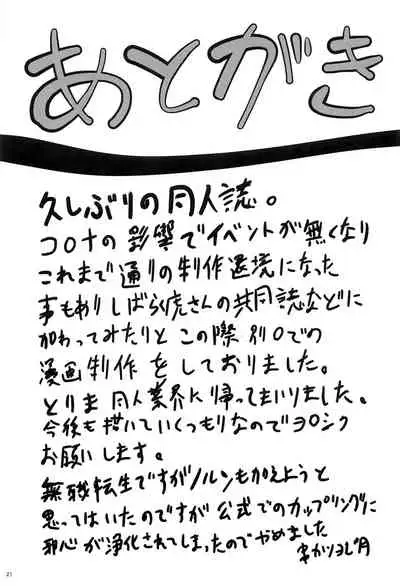 あとがき
久しぶりの同人誌。
コロナの影響でイベントが無くなり
これまで通りの制作環境になった
事もありしばらく虎さんの共同誌などに
加わってみたりと この際別口での
漫画制作をしておりました。
とりま同人業界に帰ってまいりました。
今後も描いていくつもりなのでヨロシク
お願いします。
無職転生ですがノルンもかえようと
思ってはいたのですが公式でのカップリングに
邪心が浄化されてしまったのでやめました
串かつヨし月
21